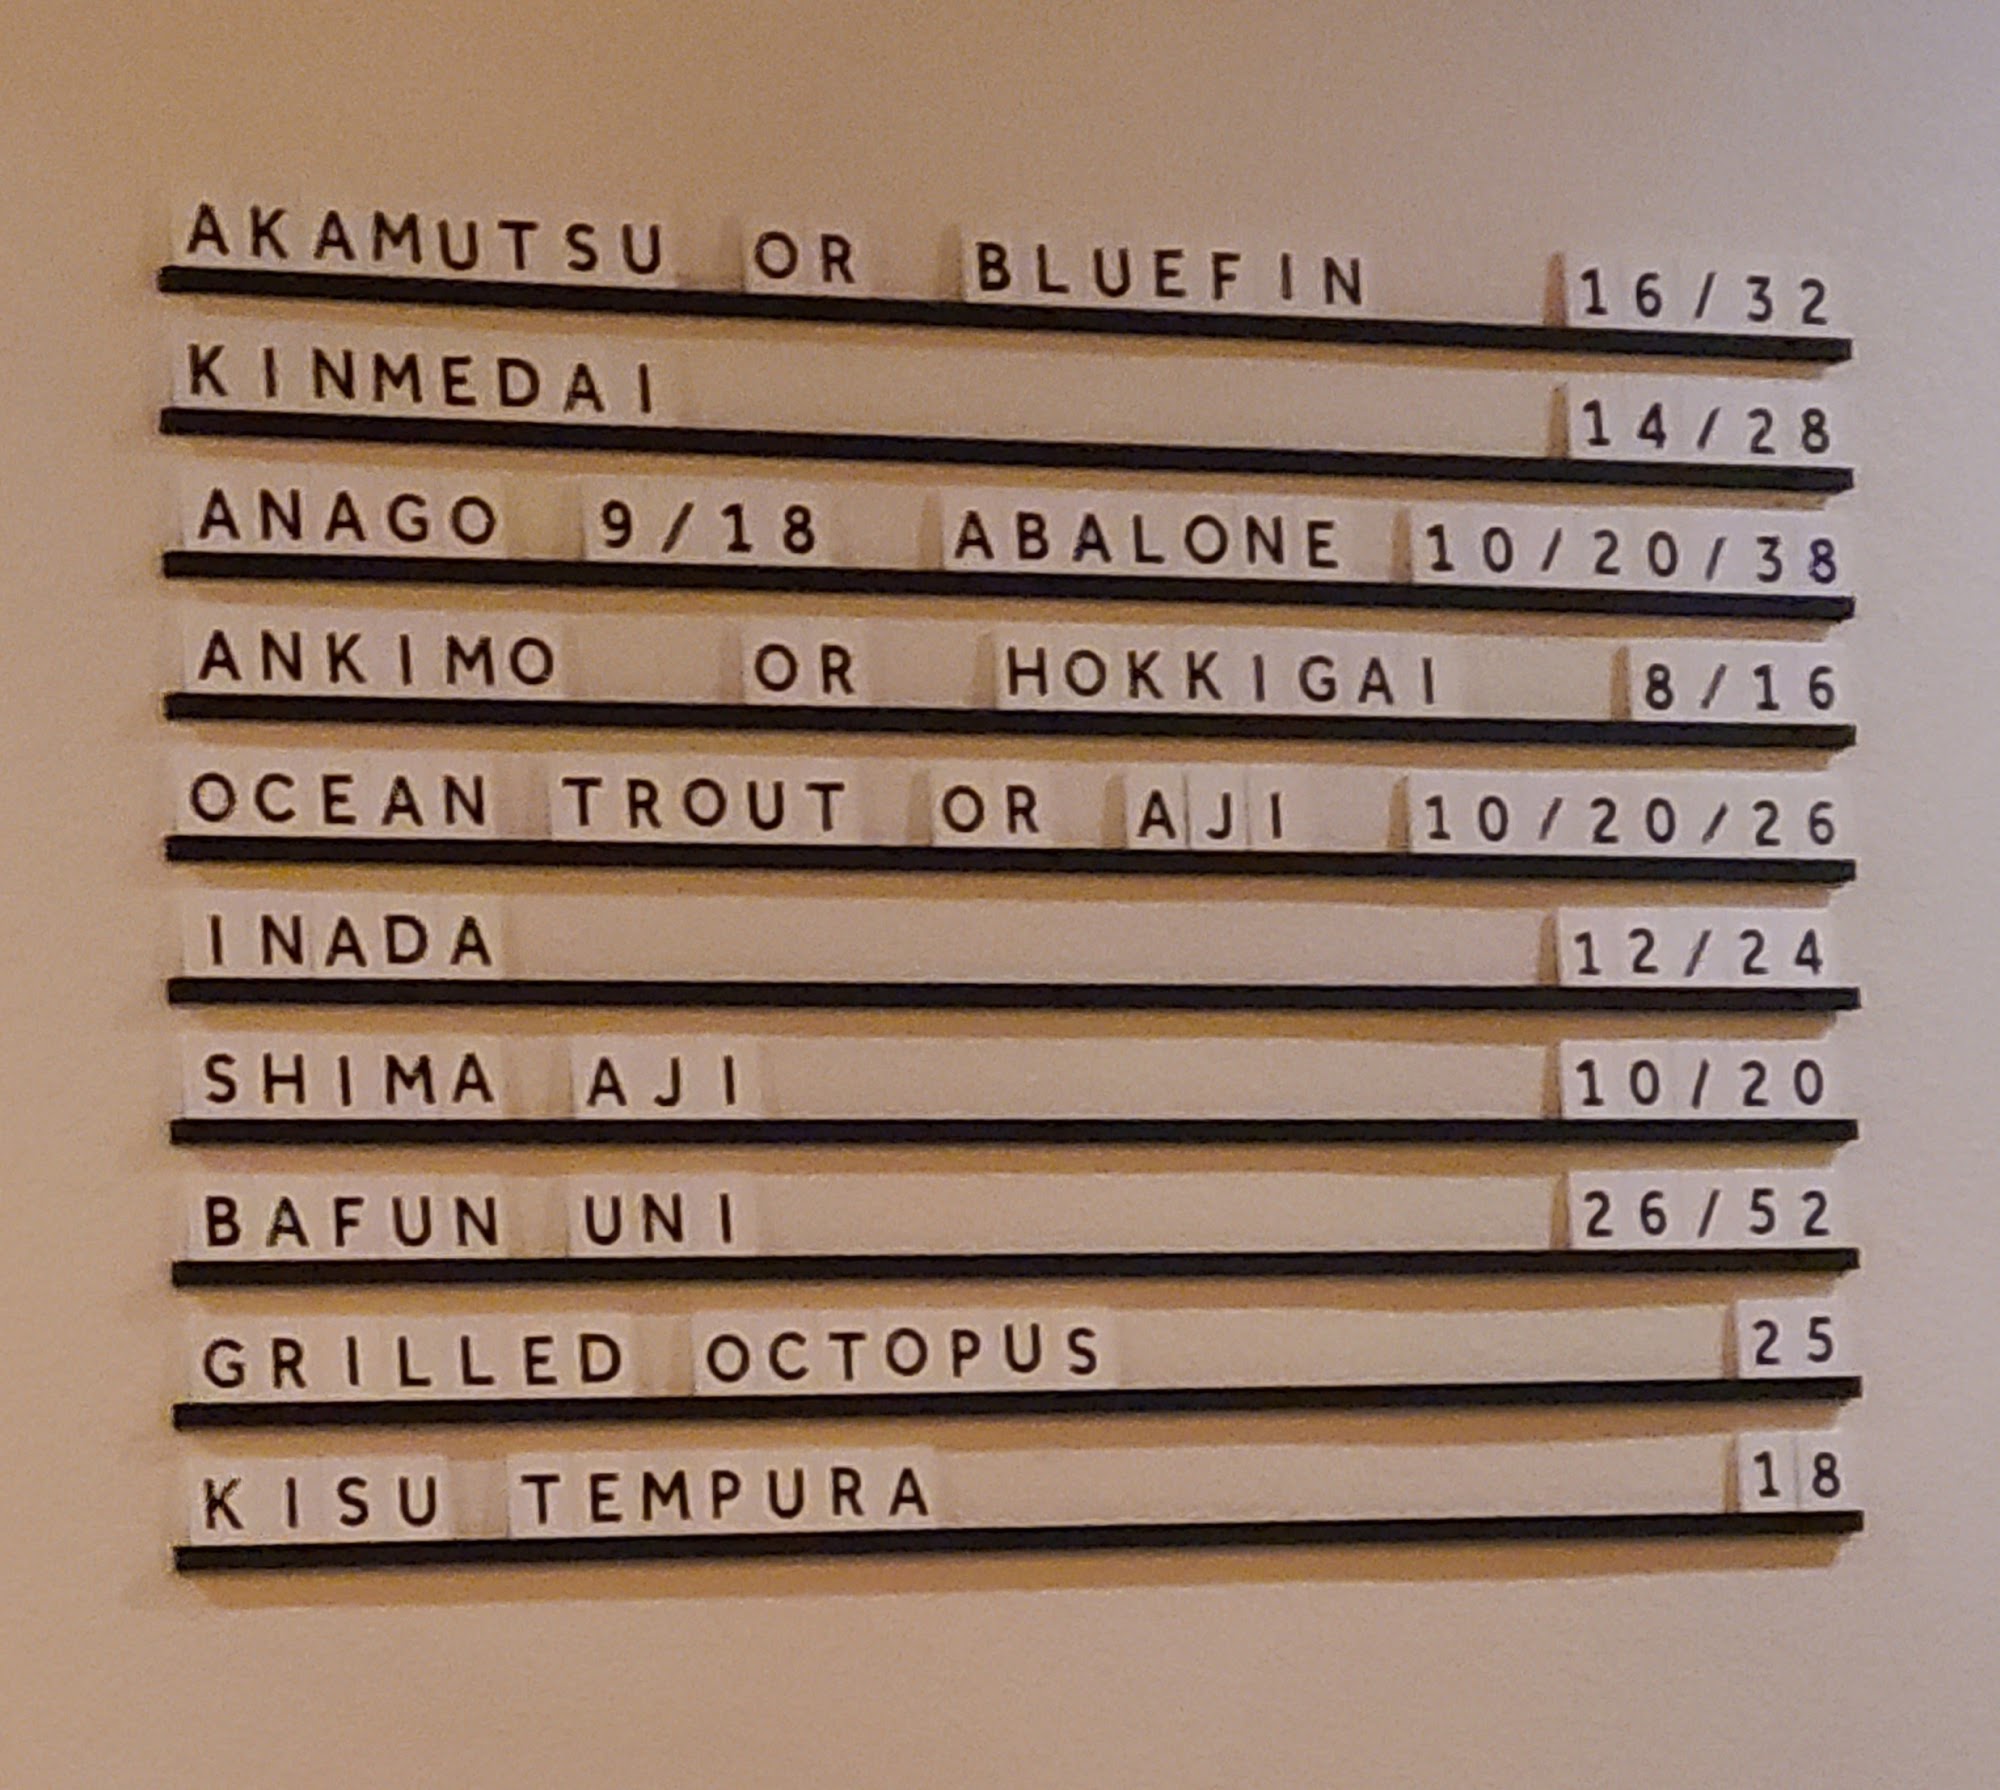 AKAMUTSU OR BLUEFIN 16/32
KINMEDAI 14/28
ANAGO 9/18 ABALONE 10/20/38
ANKIMO OR HOKKIGAI 8/16
OCEAN TROUT OR AJI 10/20/26
INADA 12/24
SHIMA AJI 10/20
BAFUN UNI 26/52
GRILLED OCTOPUS 25
KISU TEMPURA 18